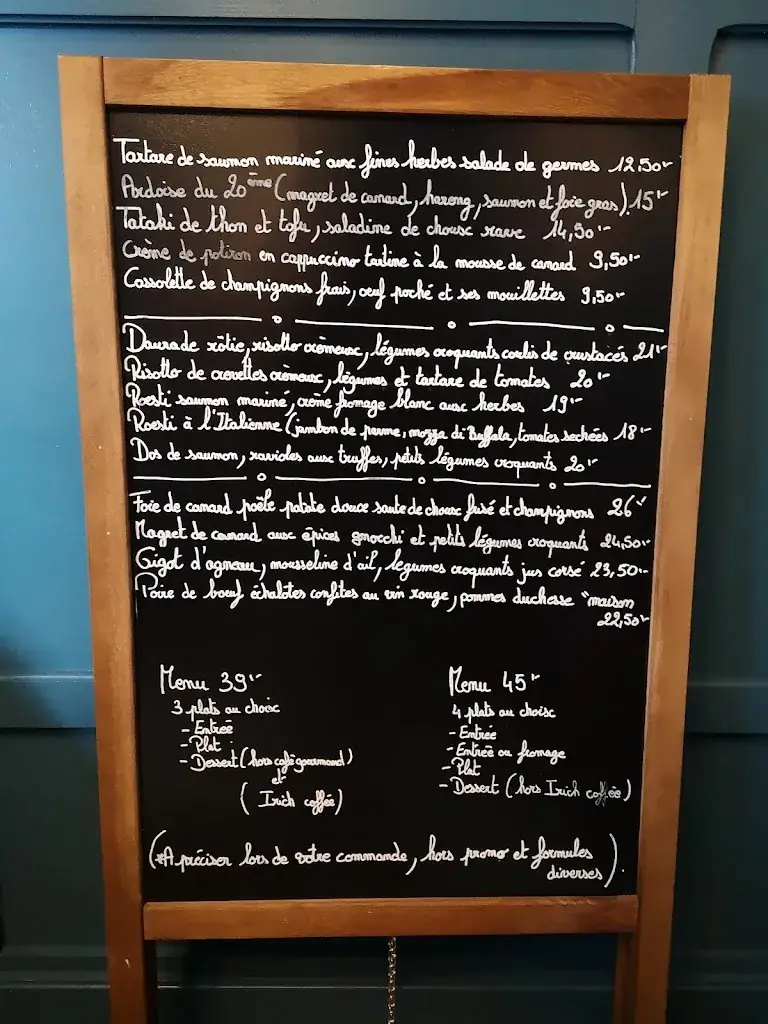 Tartare de saumon mariné aux fines herbes salade de germes 12,50.-
Ardoise du 20ème (magret de canard, hareng, saumon et foie gras). 15.-
Tataki de thon et tofu, saladine de choux rave 14,50.-
Crème de potiron en cappuccino tartine à la mousse de canard 9,50.-
Cassolette de champignons frais, œuf poché et ses mouillettes 9,50.-
Daurade rôtie, risotto crémeux, légumes croquants coulis de crustacés 21.-
Risotto de crevettes crémeux, légumes et tartare de tomates 20.-
Roesti saumon mariné, crème fromage blanc aux herbes 19.-
Roesti à l'Italienne (jambon de parme, mozza di Buffala, tomates sechées 18.-
Dos de saumon, ravioles aux truffes, petits légumes croquants 20.-
Foie de canard poêlé patate douce saute de choux frisé et champignons 26.-
Magret de canard aux épices gnocchi et petits légumes croquants 24,50.-
Gigot d'agneau, mousseline d'ail, legumes croquants jus corsé 23,50.-
Poire de bœuf échalotes confites au vin rouge, pommes duchesse "maison
22,50.-
Menu 39.-
3 plats au choix
- Entrée
- Plat
- Dessert (hors café gourmand)
et
( Irich coffée)
Menu 45.-
4 plats au choix
- Entrée
- Entrée ou fromage
- Plat
- Dessert (hors Irich coffée)
(*A préciser lors de votre commande, hors promo et formules
diverses).